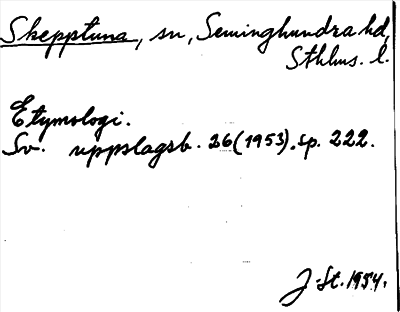 Skepptuna, sn, Seminghundra hd,
Sthlms. l.
Etymologi.
Sv. uppslagsb. 26 (1953). sp. 222.
J. St. 1954.